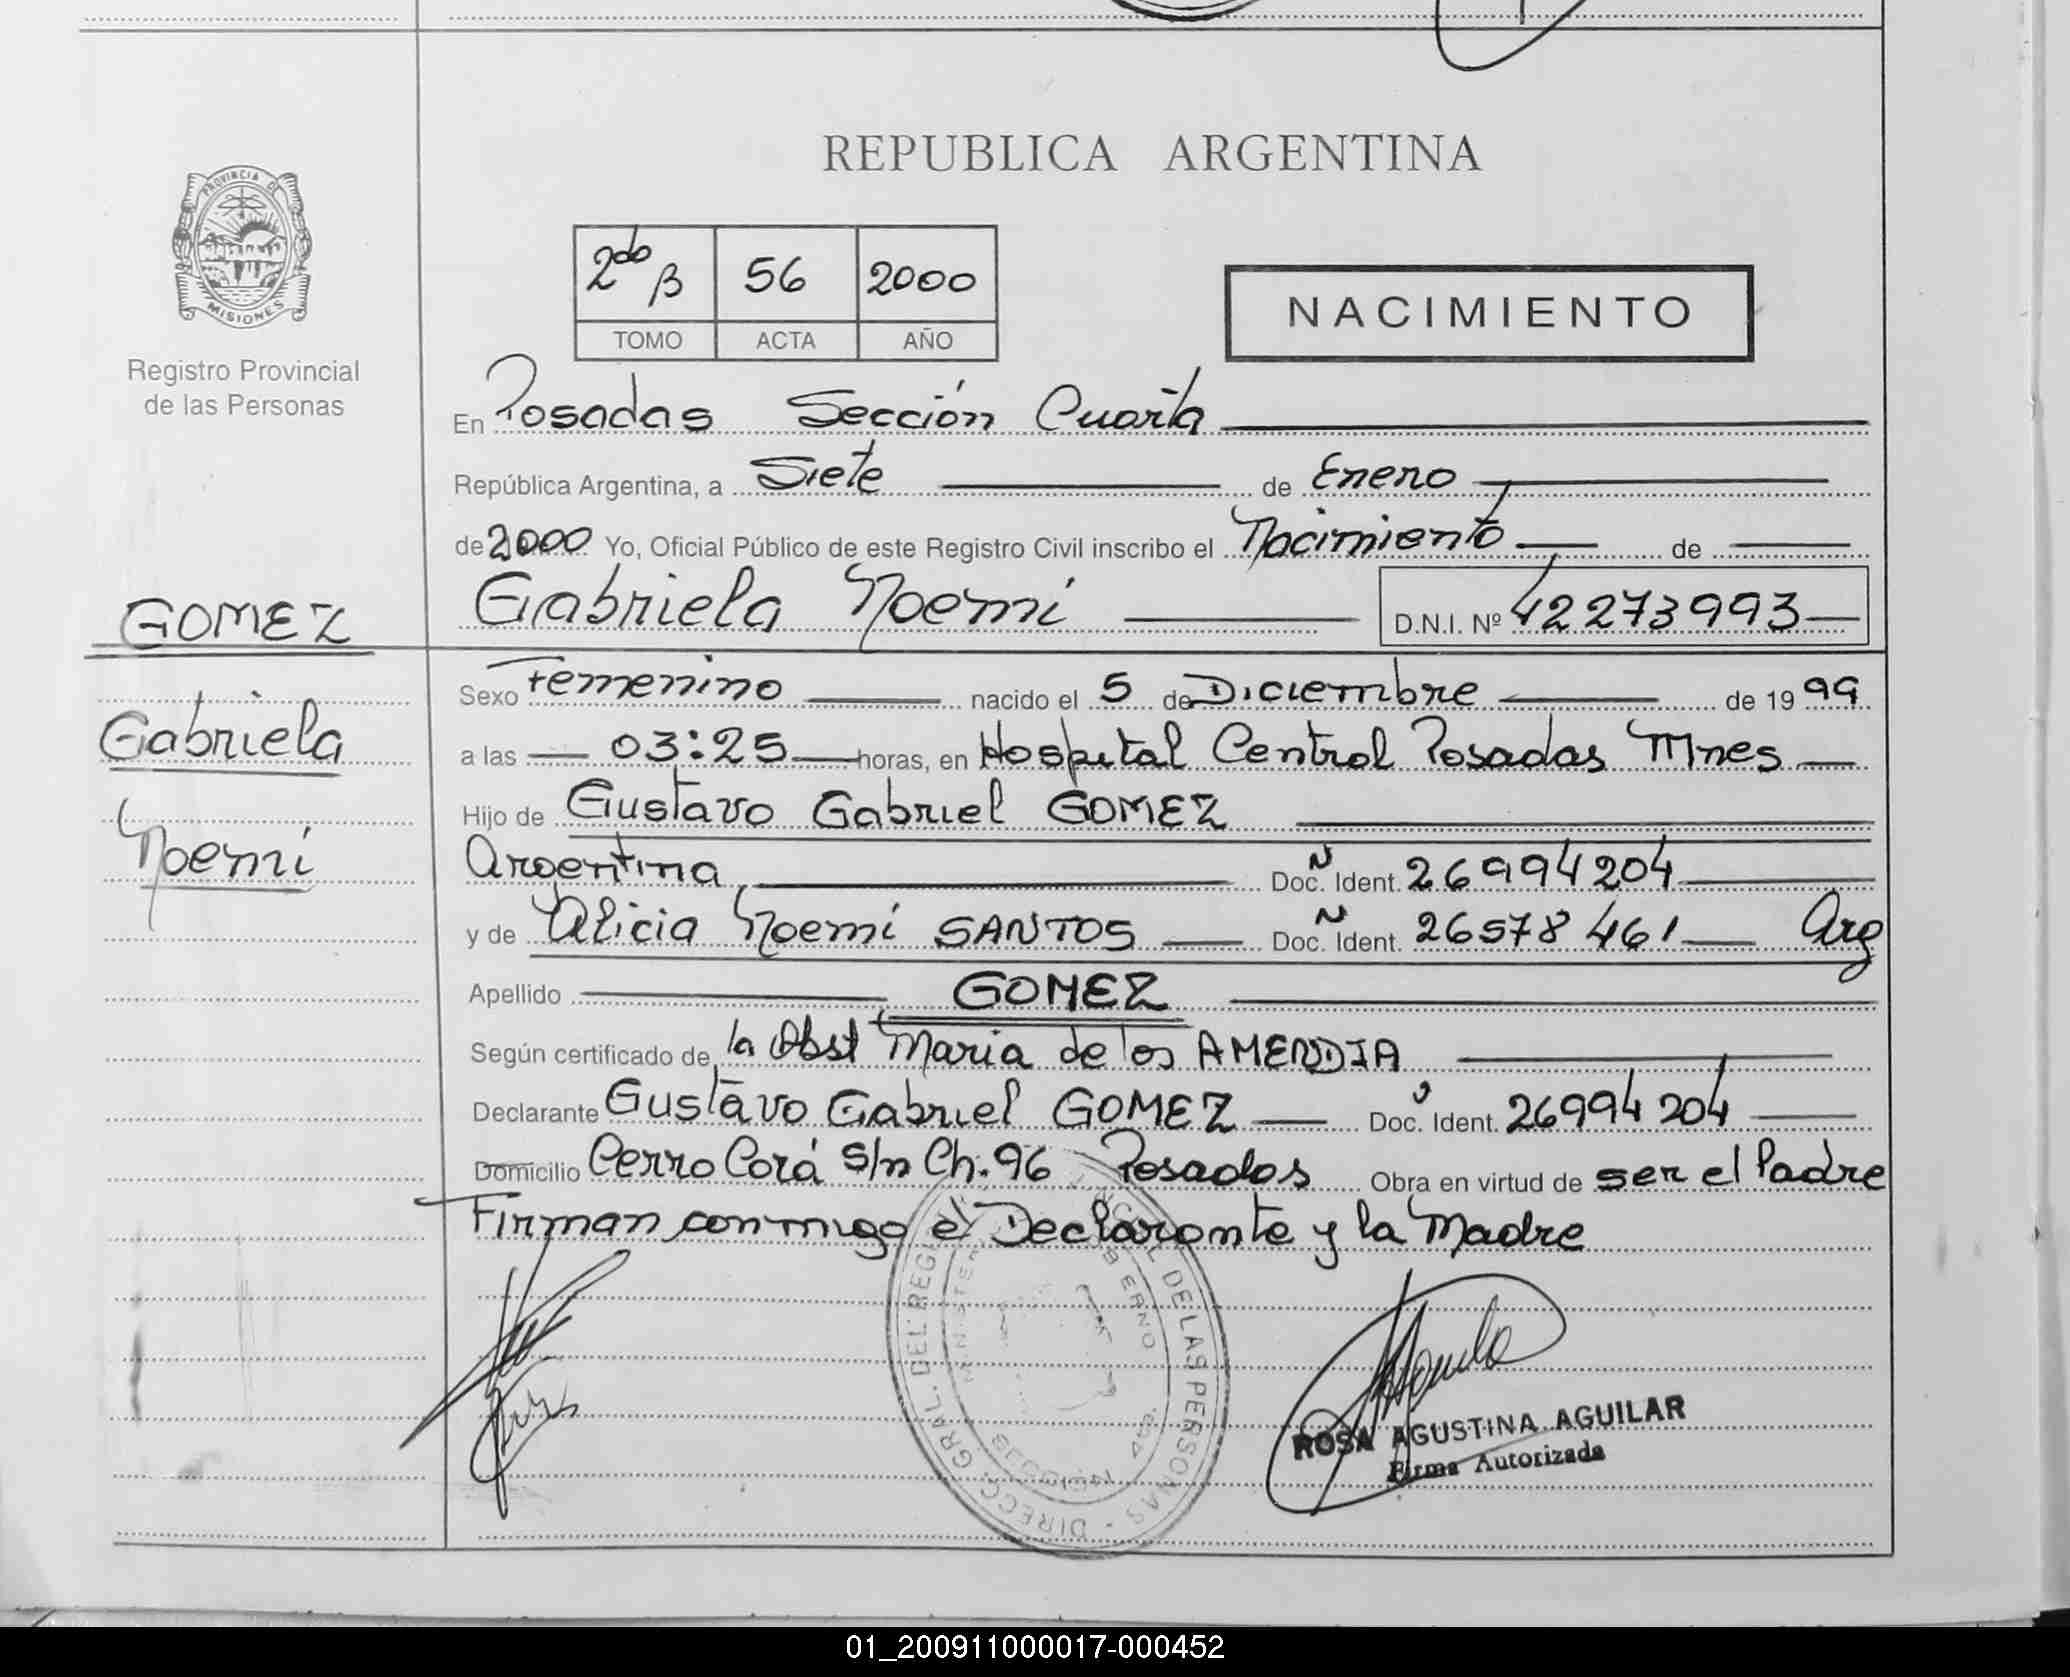 REPUBLICA ARGENTINA
PROVINCIA DE
MISIONES
Registro Provincial
de las Personas
2do B 56 2000
TOMO ACTA AÑO
NACIMIENTO
En Posadas Sección Cuarta
República Argentina, a Siete de Enero
de 2000 Yo, Oficial Público de este Registro Civil inscribo el Nacimiento de
Gabriela Noemi D.N.I. Nº 42273993
GOMEZ
Gabriela
Noemi
Sexo Femenino nacido el 5 de Diciembre de 19 99
a las 03:25 horas, en Hospital Central Posadas Mnes
Hijo de Gustavo Gabriel GOMEZ
Argentina Doc. Ident. N 26994204
y de Alicia Noemi SANTOS Doc. Ident. N 26578461 Arg
Apellido GOMEZ
Según certificado de la Obst Maria de los AMENDIA
Declarante Gustavo Gabriel GOMEZ Doc. Ident. 26994204
Domicilio Cerro Corá S/n Ch. 96 Posadas Obra en virtud de ser el Padre
Firman conmigo el Declarante y la Madre
DIRECC. GRAL. DEL REG DE LAS PERSONAS
ROSA AGUSTINA AGUILAR
Firma Autorizada
01_200911000017-000452